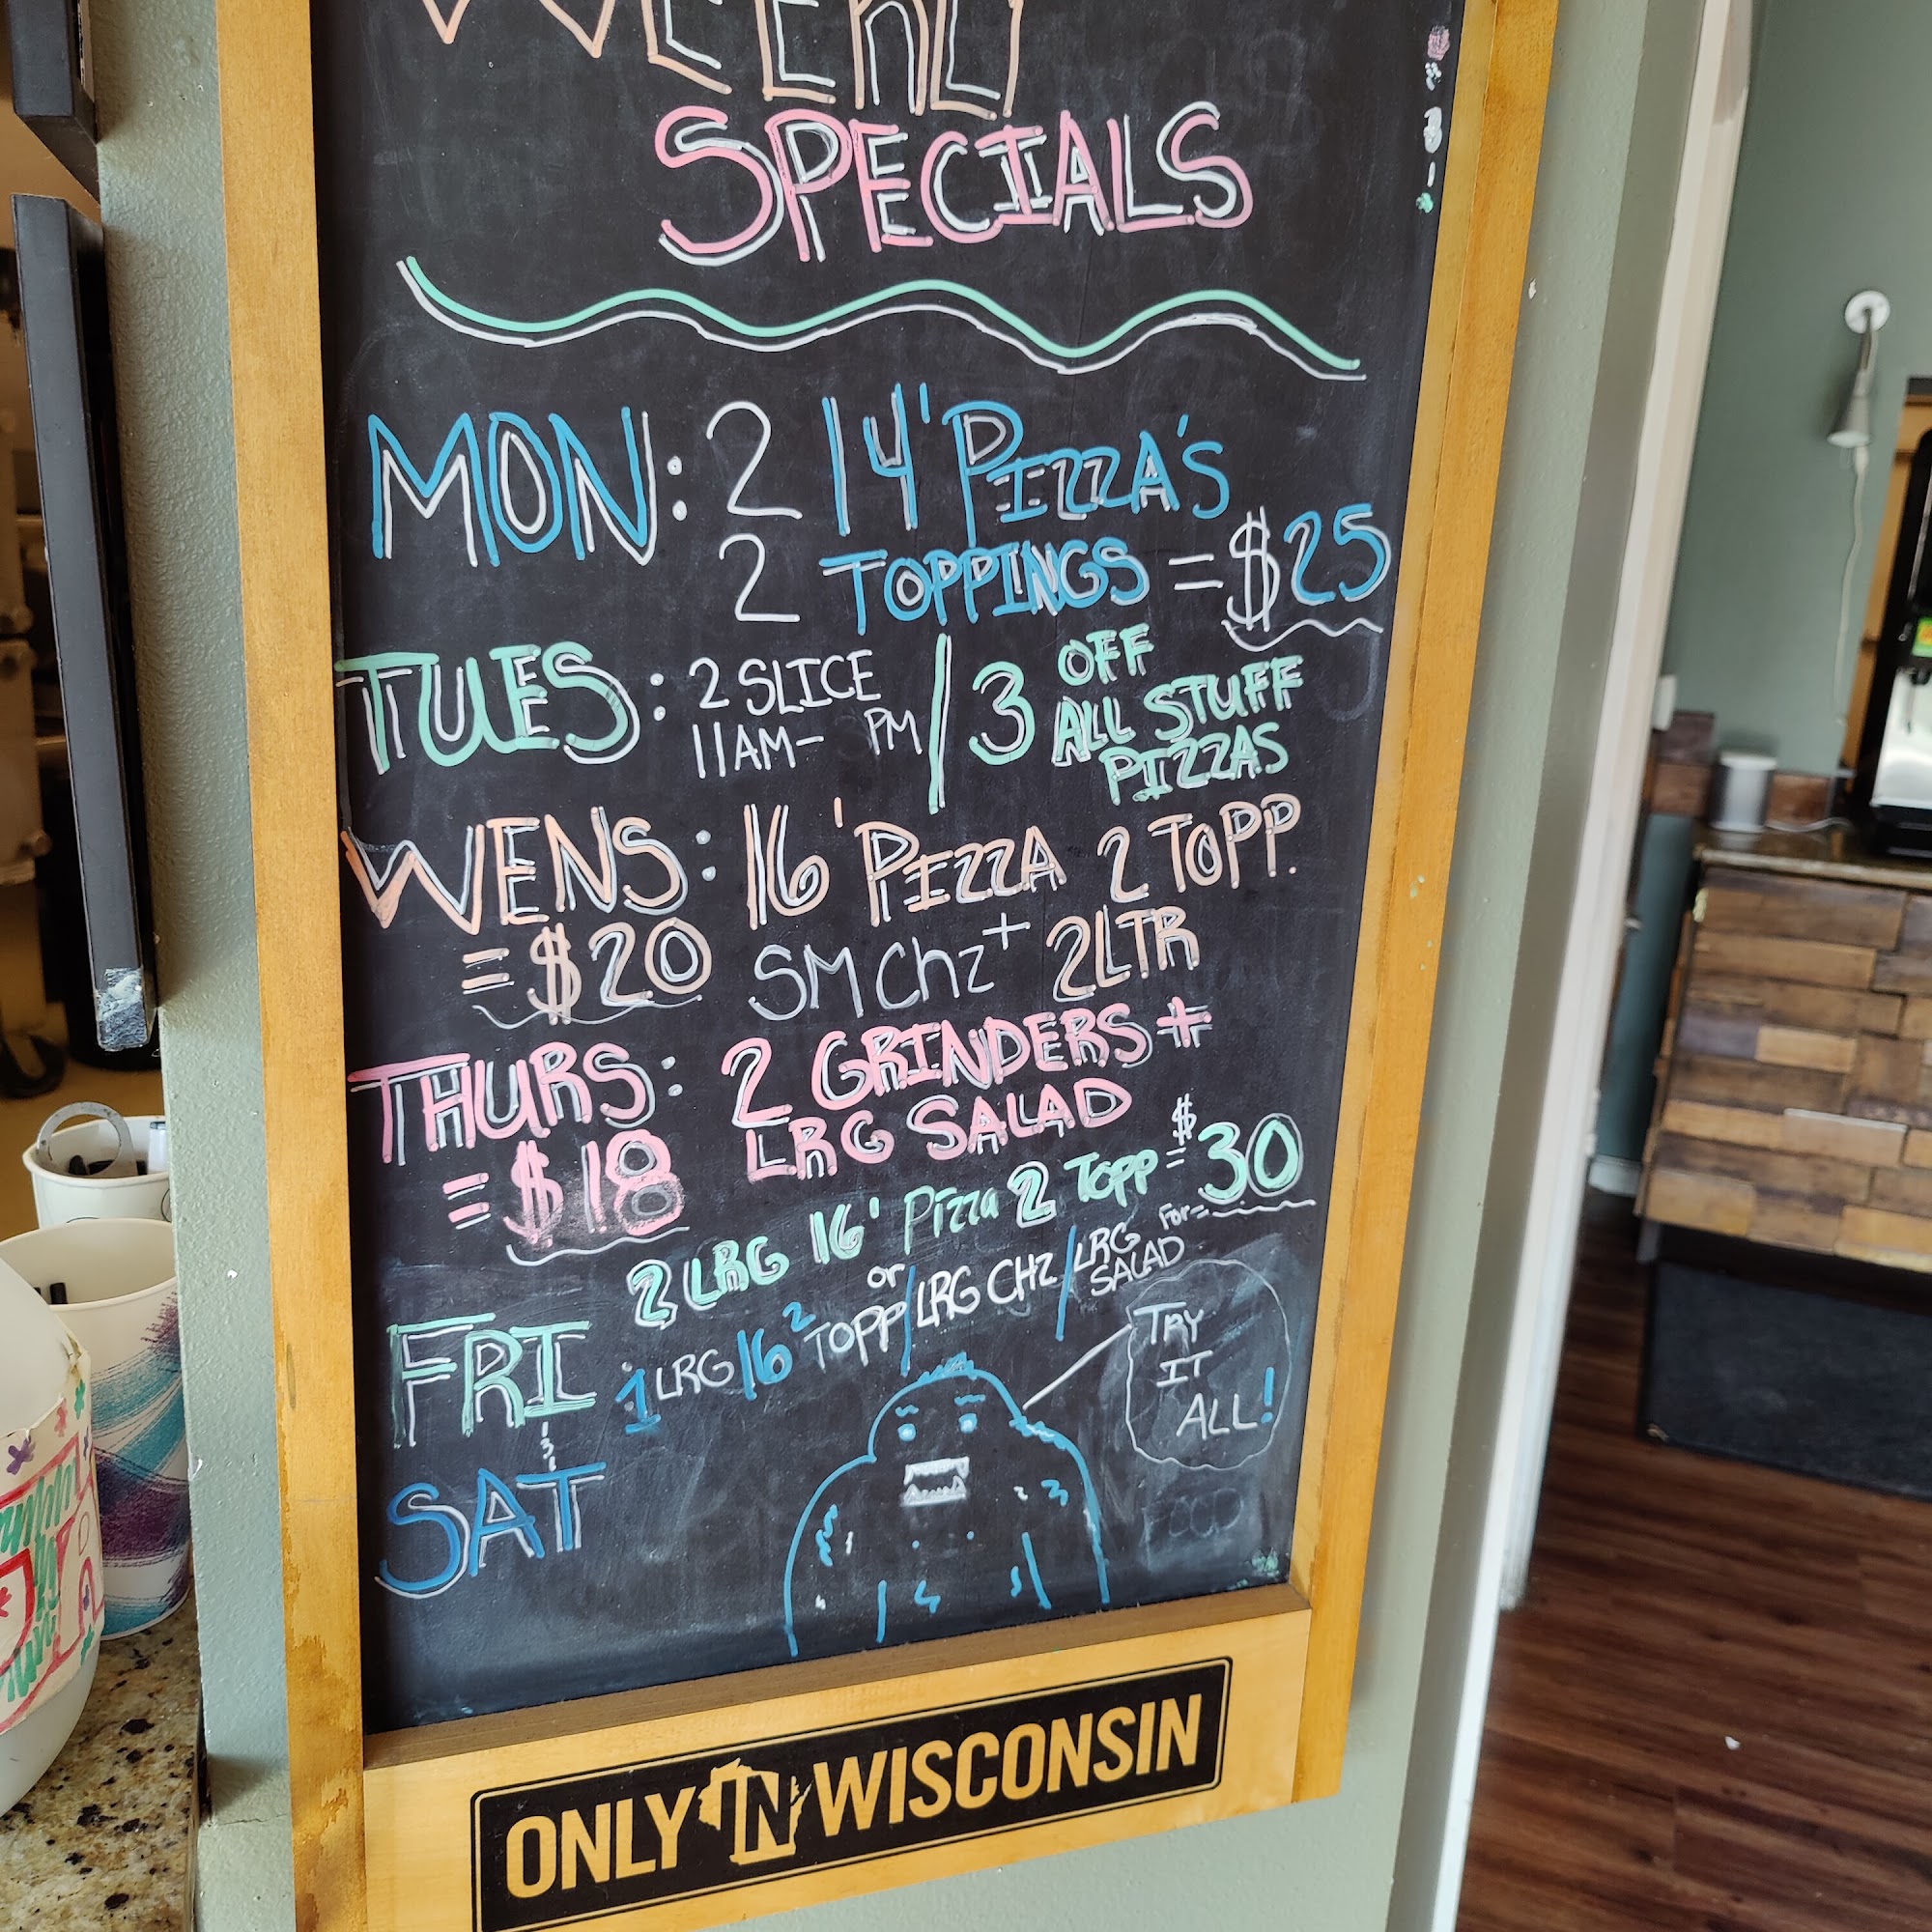 WEEKLY
SPECIALS
MON: 2 14' PIZZA'S
2 TOPPINGS = $25
TUES: 2 SLICE
11AM- PM / 3 OFF
ALL STUFF
PIZZAS
WENS: 16' PIZZA 2 TOPP.
= $20 SM Chz + 2LTR
THURS: 2 GRINDERS +
= $18 LRG SALAD
2 LRG 16' Pizza 2 TOPP = $30
or For=
FRI 1 LRG/16 2 TOPP/LRG CHZ/LRG SALAD
SAT
TRY
IT
ALL!
FOOD
ONLY IN WISCONSIN